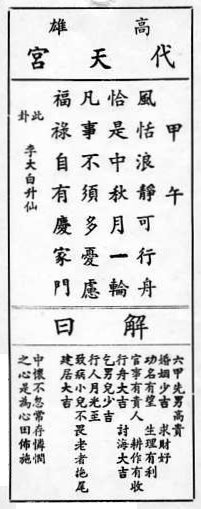 高雄
代天宮
甲午
風恬浪靜可行舟
恰是中秋月一輪
凡事不須多憂慮
福祿自有慶家門
此卦 李大白升仙
解曰
六甲先男高貴
婚姻少吉 求財好
功名有望 生理有利
官事有貴人 耕作有收
行舟大吉 討海大吉
乞男兒少吉
行人月光至
致病小兒不畏老者拖尾
建居大吉
中懷不忘常存憐憫
之心是為心田佈施